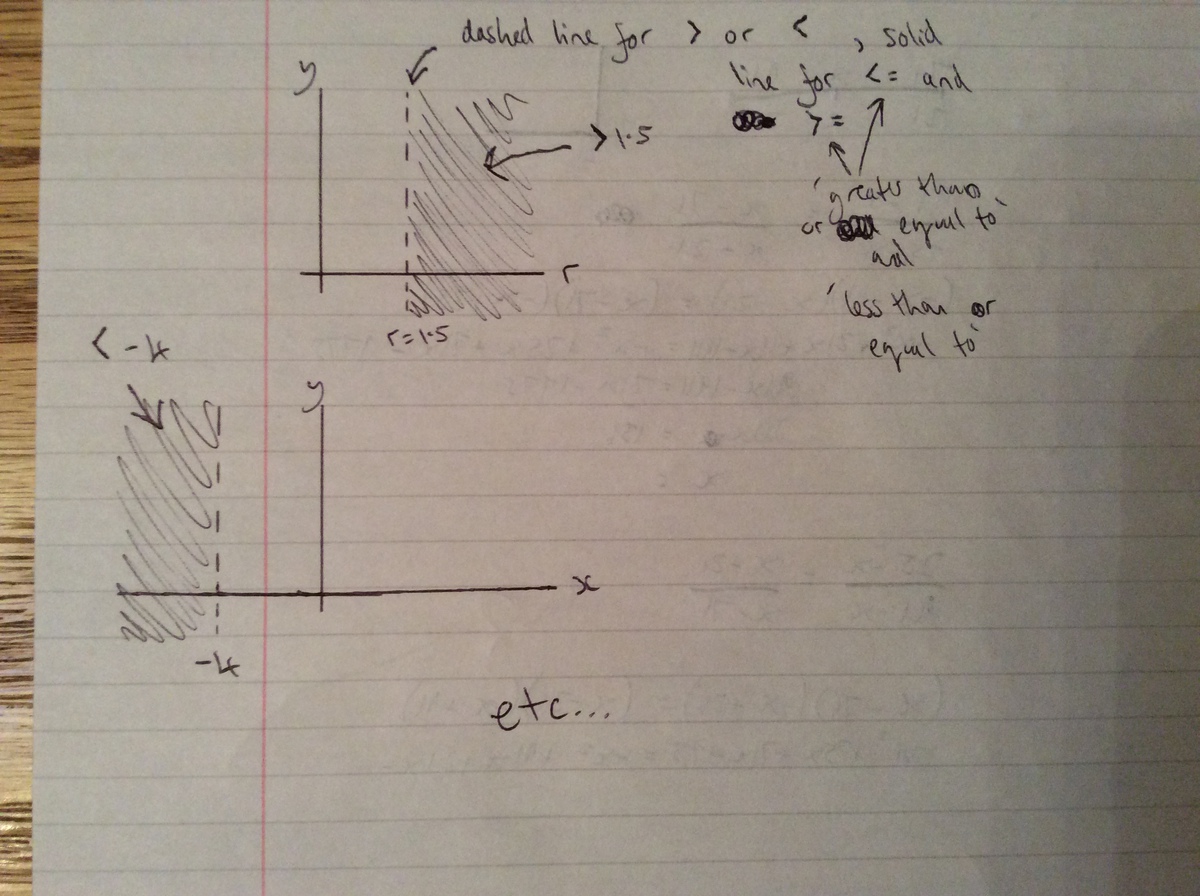 dashed line for > or < , solid
line for <= and
>=
y
> 1.5
'greater than
or equal to'
and
'less than or
equal to'
r
r=1.5
< -4
y
x
-4
etc...